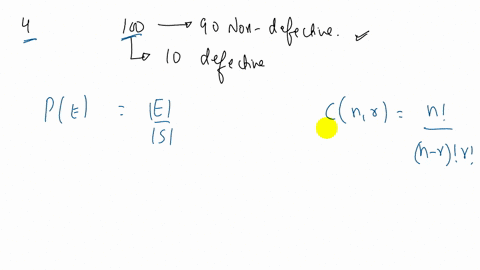 4 100 → 90 Non-defective. ✓
↳ 10 defective
P(E) = |E| / |S|
C(n,r) = n! / (n-r)! r!